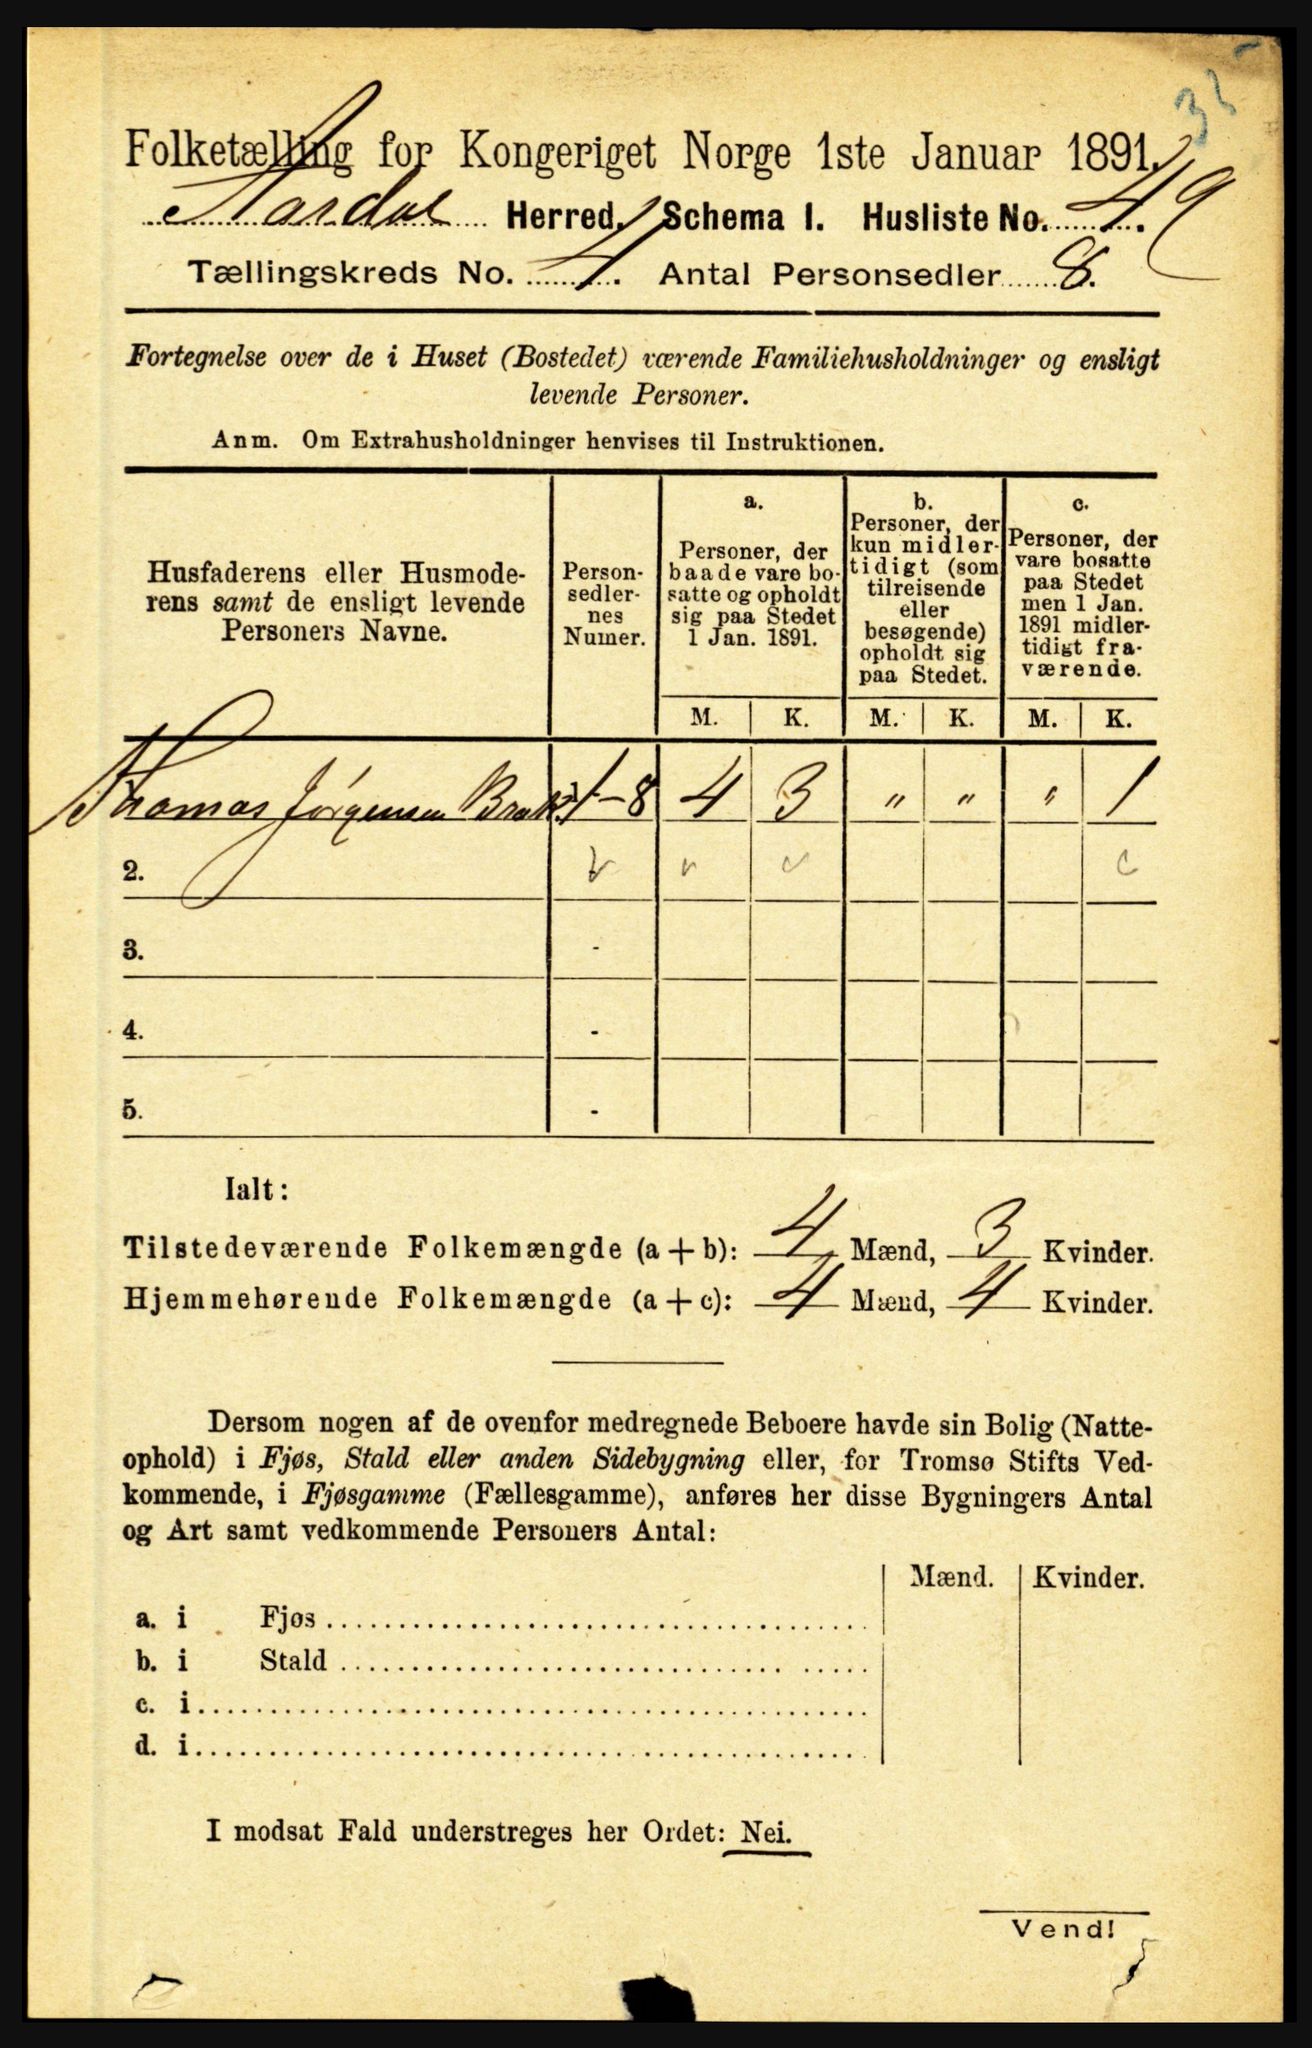 35
Folketælling for Kongeriget Norge 1ste Januar 1891.
Aardal Herred. Schema I. Husliste No. 49.
Tællingskreds No. 4. Antal Personsedler 8.
Fortegnelse over de i Huset (Bostedet) værende Familiehusholdninger og ensligt
levende Personer.
Anm. Om Extrahusholdninger henvises til Instruktionen.
Husfaderens eller Husmode-
rens samt de ensligt levende
Personers Navne.
Person-
sedler-
nes
Numer.
a.
Personer, der
baade vare bo-
satte og opholdt
sig paa Stedet
1 Jan. 1891.
b.
Personer, der
kun midler-
tidigt (som
tilreisende
eller
besøgende)
opholdt sig
paa Stedet.
c.
Personer, der
vare bosatte
paa Stedet
men 1 Jan.
1891 midler-
tidigt fra-
værende.
M. K. M. K. M. K.
Thomas Jørgensen 1-8 4 3 " " " 1
2.
3. -
4. -
5. -
Ialt:
Tilstedeværende Folkemængde (a + b): 4 Mænd, 3 Kvinder.
Hjemmehørende Folkemængde (a + c): 4 Mænd, 4 Kvinder.
Dersom nogen af de ovenfor medregnede Beboere havde sin Bolig (Natte-
ophold) i Fjøs, Stald eller anden Sidebygning eller, for Tromsø Stifts Ved-
kommende, i Fjøsgamme (Fællesgamme), anføres her disse Bygningers Antal
og Art samt vedkommende Personers Antal:
Mænd. Kvinder.
a. i Fjøs
b. i Stald
c. i
d. i
I modsat Fald understreges her Ordet: Nei.
Vend!